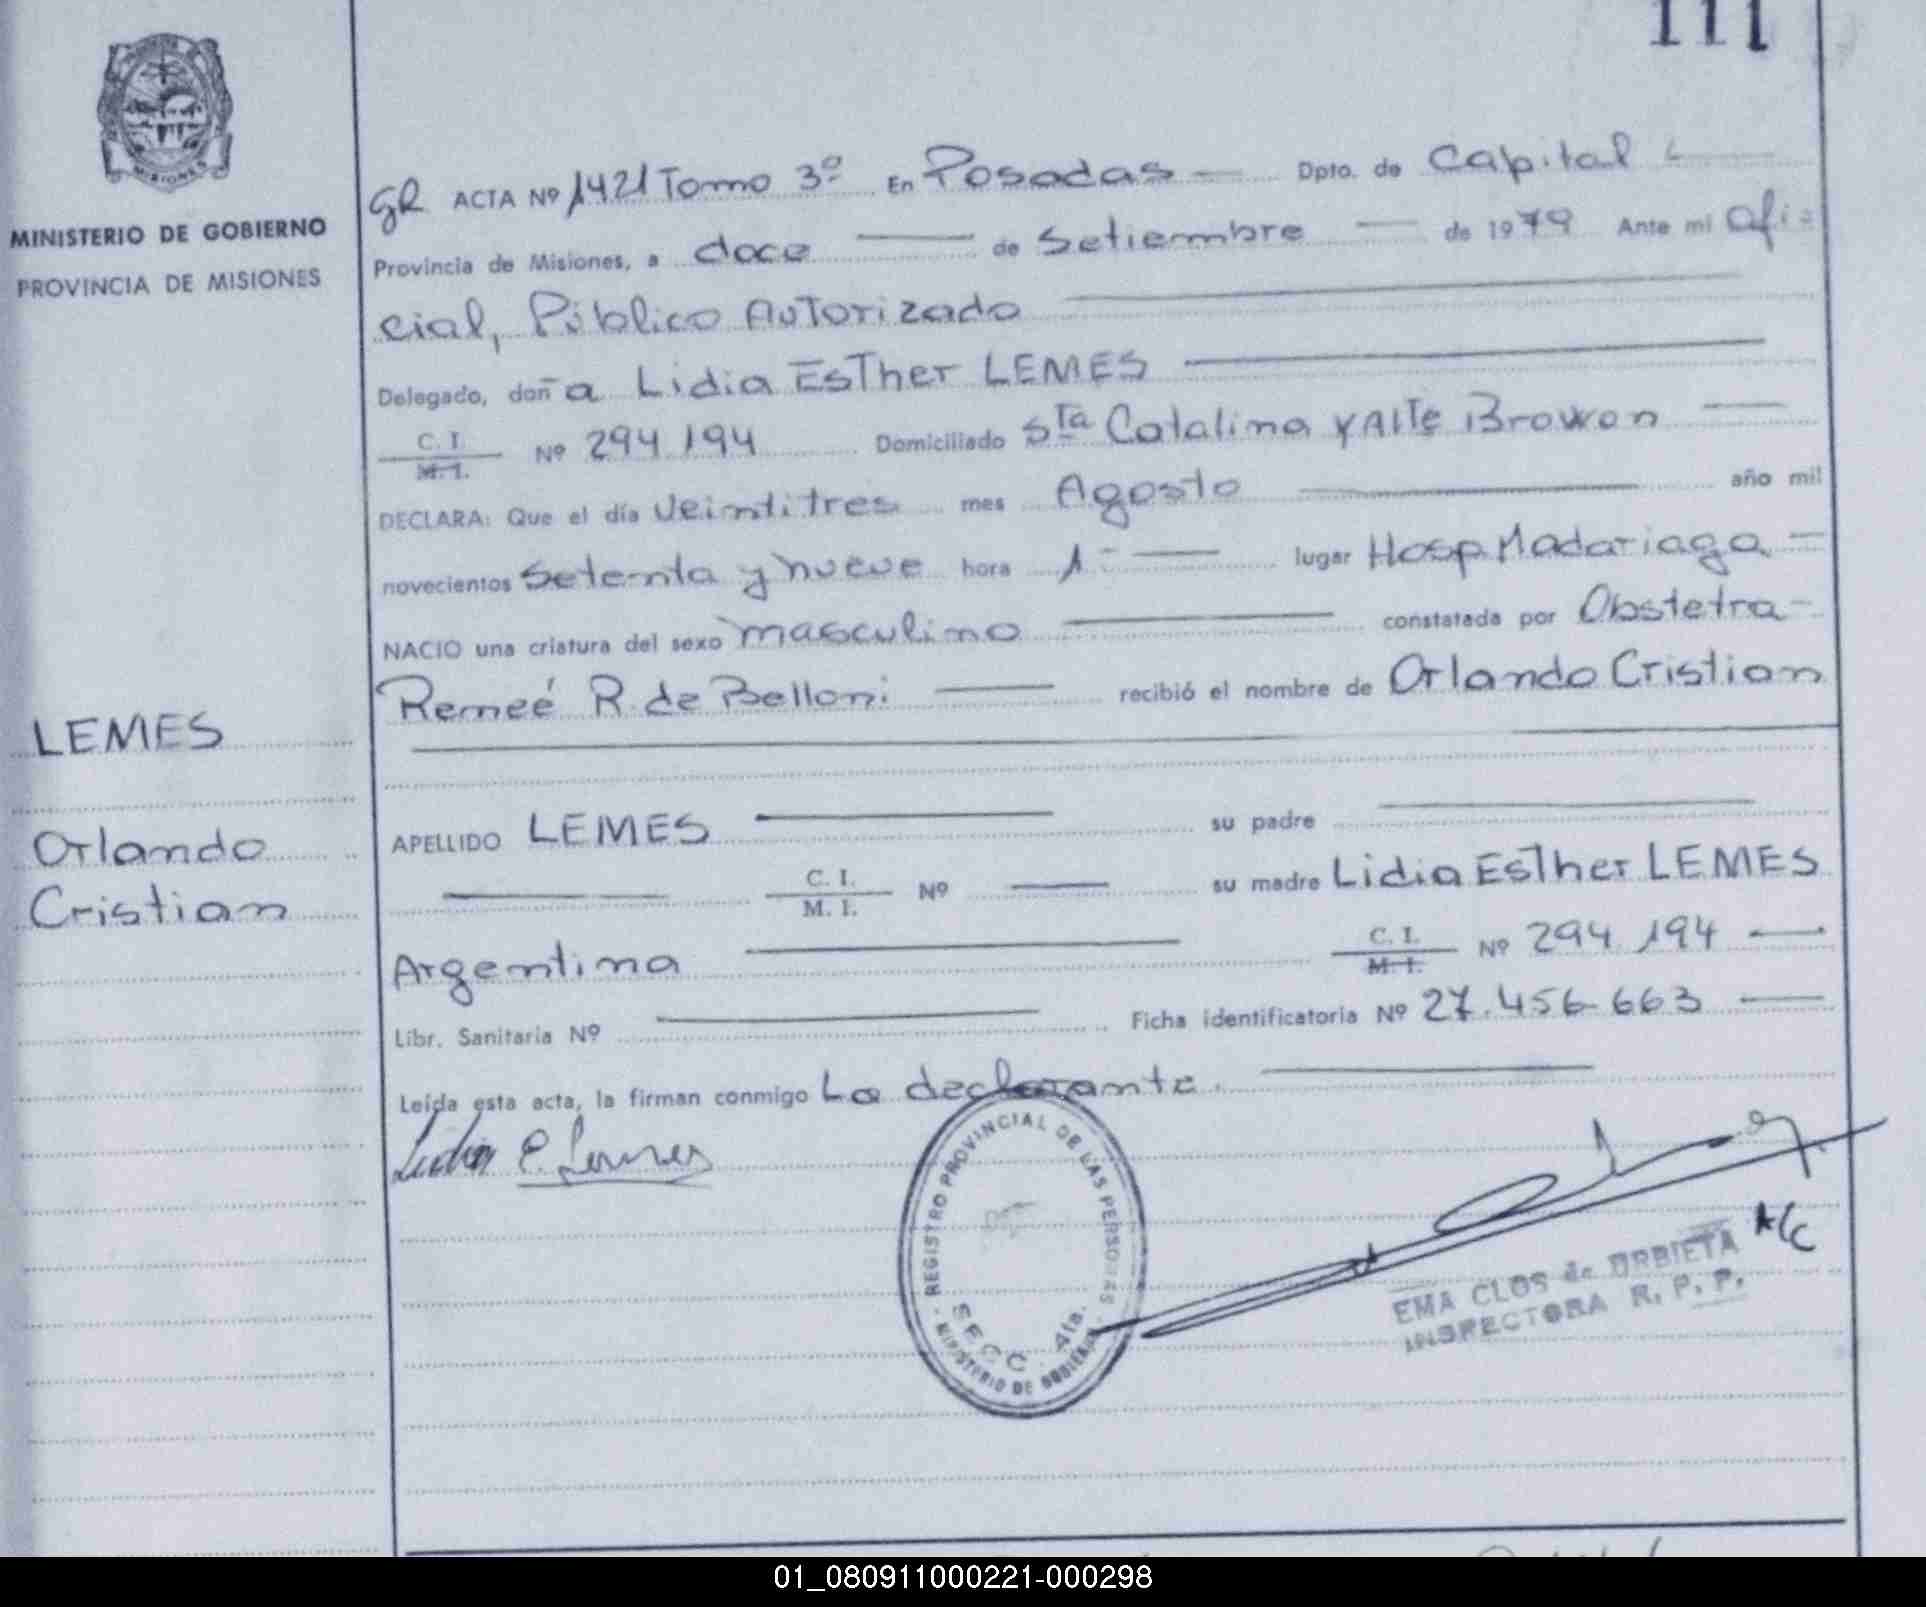 111
MISIONES
MINISTERIO DE GOBIERNO
PROVINCIA DE MISIONES
LEMES
Orlando
Cristian
gR ACTA Nº 1421 Tomo 3º En Posadas — Dpto. de Capital
Provincia de Misiones, a doce — de Setiembre — de 1979 Ante mi Ofi=
cial, Público Autorizado
Delegado, doña Lidia Esther LEMES
C. I.
M. I. Nº 294.194 Domiciliado Sta Catalina y Alte Browon
DECLARA: Que el día Veintitres mes Agosto año mil
novecientos setenta y nueve hora 1 lugar Hosp. Madariaga
NACIO una criatura del sexo masculino constatada por Obstetra
Remeé R. de Belloni recibió el nombre de Orlando Cristian
APELLIDO LEMES su padre
C. I.
M. I. Nº su madre Lidia Esther LEMES
Argentina C. I.
M. I. Nº 294.194
Libr. Sanitaria Nº Ficha identificatoria Nº 27.456.663
Leída esta acta, la firman conmigo La declarante.
Lidia E. Lemes
REGISTRO PROVINCIAL DE LAS PERSONAS
SECC. 4ta.
MINISTERIO DE GOBIERNO
A/C
EMA CLOS de URBIETA
INSPECTORA R. P. P.
01_080911000221-000298